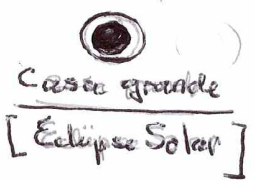 Casa grande
[Eclipse Solar]